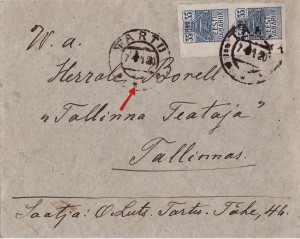 TARTU
35 35
W. a.
Herrale Borell
"Tallinna Teataja"
Tallinnas.
Saatja: O. Luts. Tartu. Tähe, 46.